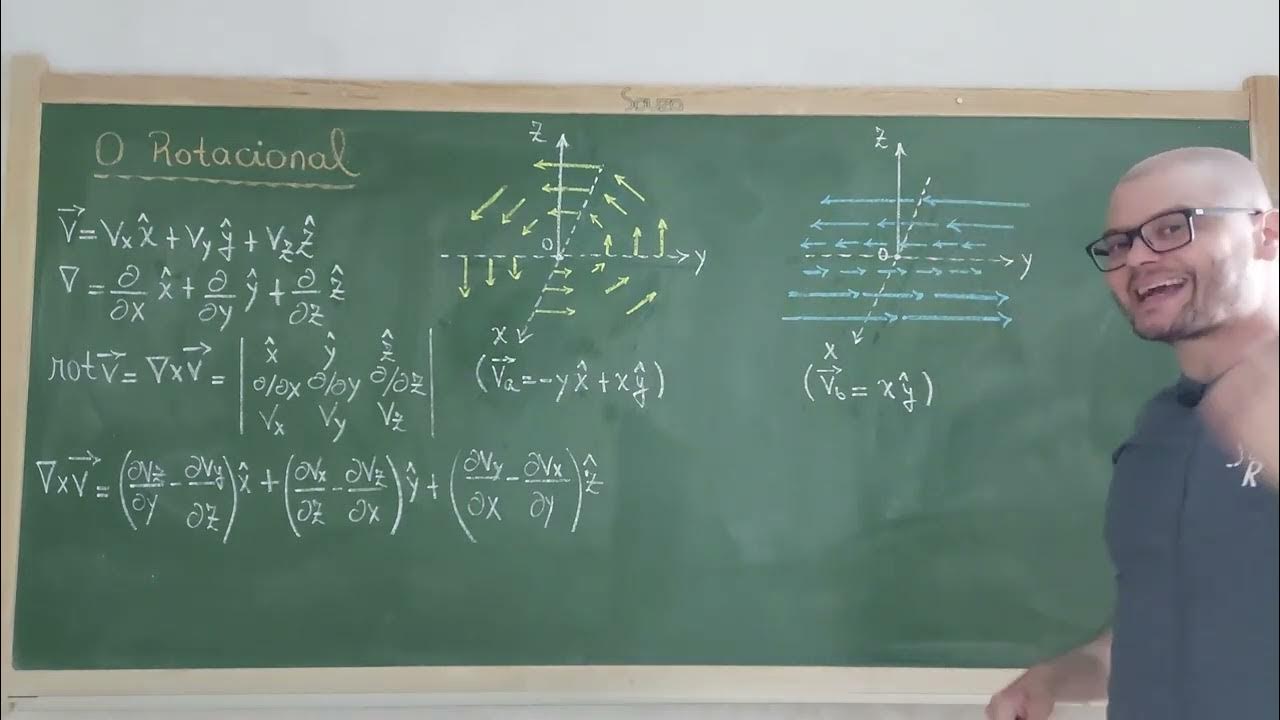 Souza
O Rotacional
V⃗ = Vₓx̂ + V_yŷ + V_zẑ
∇ = ∂/∂x x̂ + ∂/∂y ŷ + ∂/∂z ẑ
rot V⃗ = ∇xV⃗ = | x̂ ŷ ẑ |
| ∂/∂x ∂/∂y ∂/∂z |
| Vₓ V_y V_z |
∇xV⃗ = (∂V_z/∂y - ∂V_y/∂z) x̂ + (∂Vₓ/∂z - ∂V_z/∂x) ŷ + (∂V_y/∂x - ∂Vₓ/∂y) ẑ
z
0
y
x
(V⃗ₐ = -yx̂ + xŷ)
z
0
y
x
(V⃗_b = xŷ)